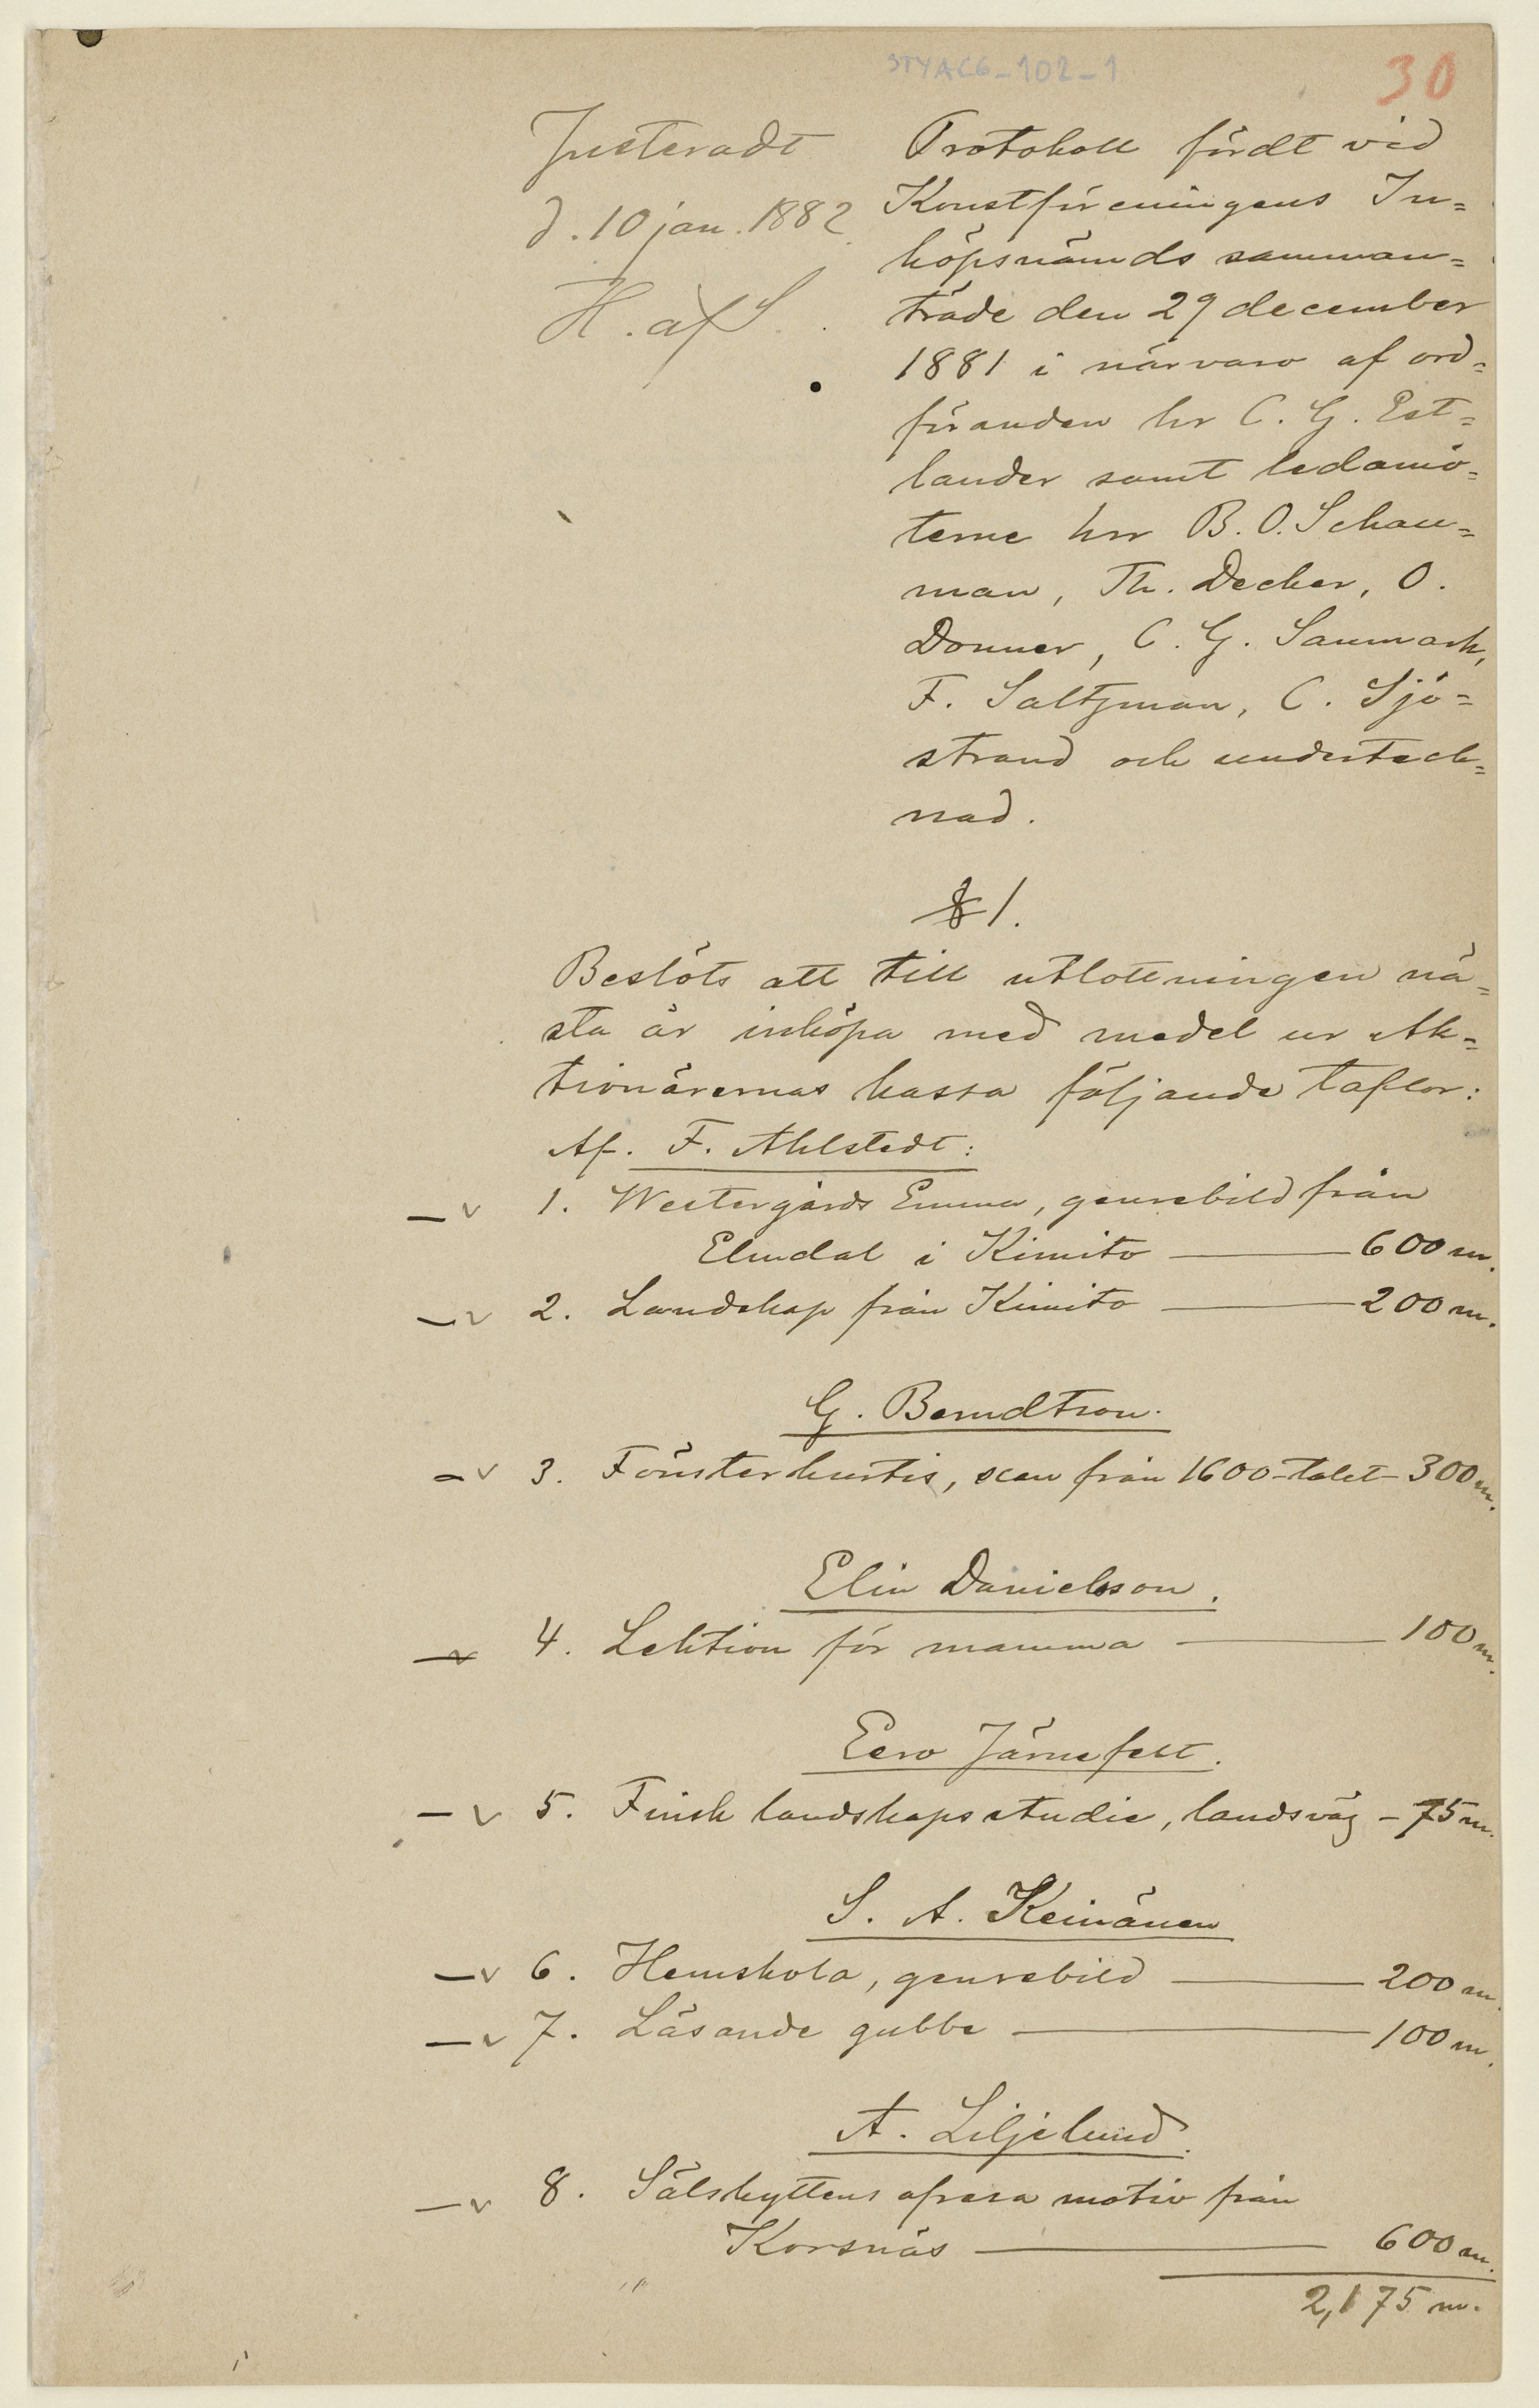 STYAC6-102-1
30
Justeradt
d. 10 jan. 1882
H. af S.
Protokoll fördt vid
Konstföreningens In=
köpsnämnds samman=
träde den 29 december
1881 i närvaro af ord=
föranden hr C. G. Est=
lander samt ledamö=
terne hrr B. O. Schau=
man, Th. Decker, O.
Donner, C. G. Sanmark,
F. Saltzman, C. Sjö=
strand och underteck=
nad.
§ 1.
Beslöts att till utlottningen nä=
sta år inköpa med medel ur Ak=
tionärernas kassa följande taflor:
Af. F. Ahlstedt:
— v 1. Westergårds Emma, genrebild från
Elmdal i Kimito — 600 m.
— v 2. Landskap från Kimito — 200 m.
G. Berndtson.
— v 3. Fönsterkurtis, scen från 1600-talet - 300 m.
Elin Danielsson.
— v 4. Lektion för mamma — 100 m.
Eero Järnefelt.
— v 5. Finsk landskapsstudie, landsväg - 75 m.
S. A. Keinänen
— v 6. Hemskola, genrebild — 200 m.
— v 7. Läsande gubbe — 100 m.
A. Liljelund.
— v 8. Sälskyttens afresa motiv från
Korsnäs — 600 m.
2,175 m.